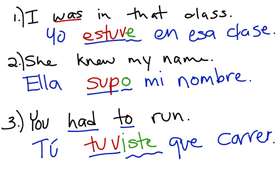 1.) I was in that class.
Yo estuve en esa clase.
2.) She knew my name.
Ella supo mi nombre.
3.) You had to run.
Tú tuviste que correr.